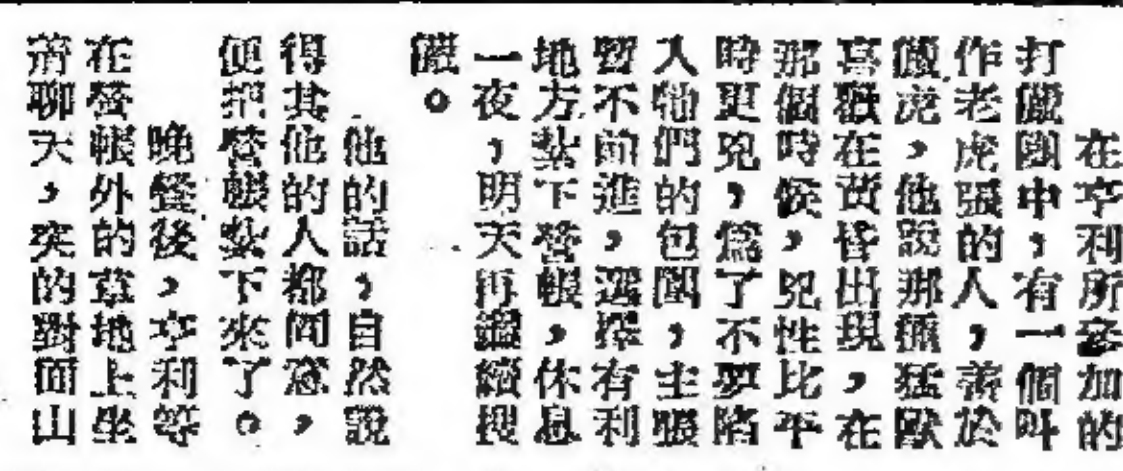 在亨利所參加的
打獵團中，有一個叫
作老虎張的人，善於
獵虎，他說那種猛獸
喜歡在黃昏出現，在
那個時候，兇性比平
時更兇，爲了不夢陷
入牠們的包圍，主張
暫不前進，選擇有利
地方紮下營帳，休息
一夜，明天再繼續搜
獵。
他的話，自然說
得其他的人都同意，
便把營帳紮下來了。
晚餐後，亨利等
在營帳外的草地上坐
着聊天，突的對面山